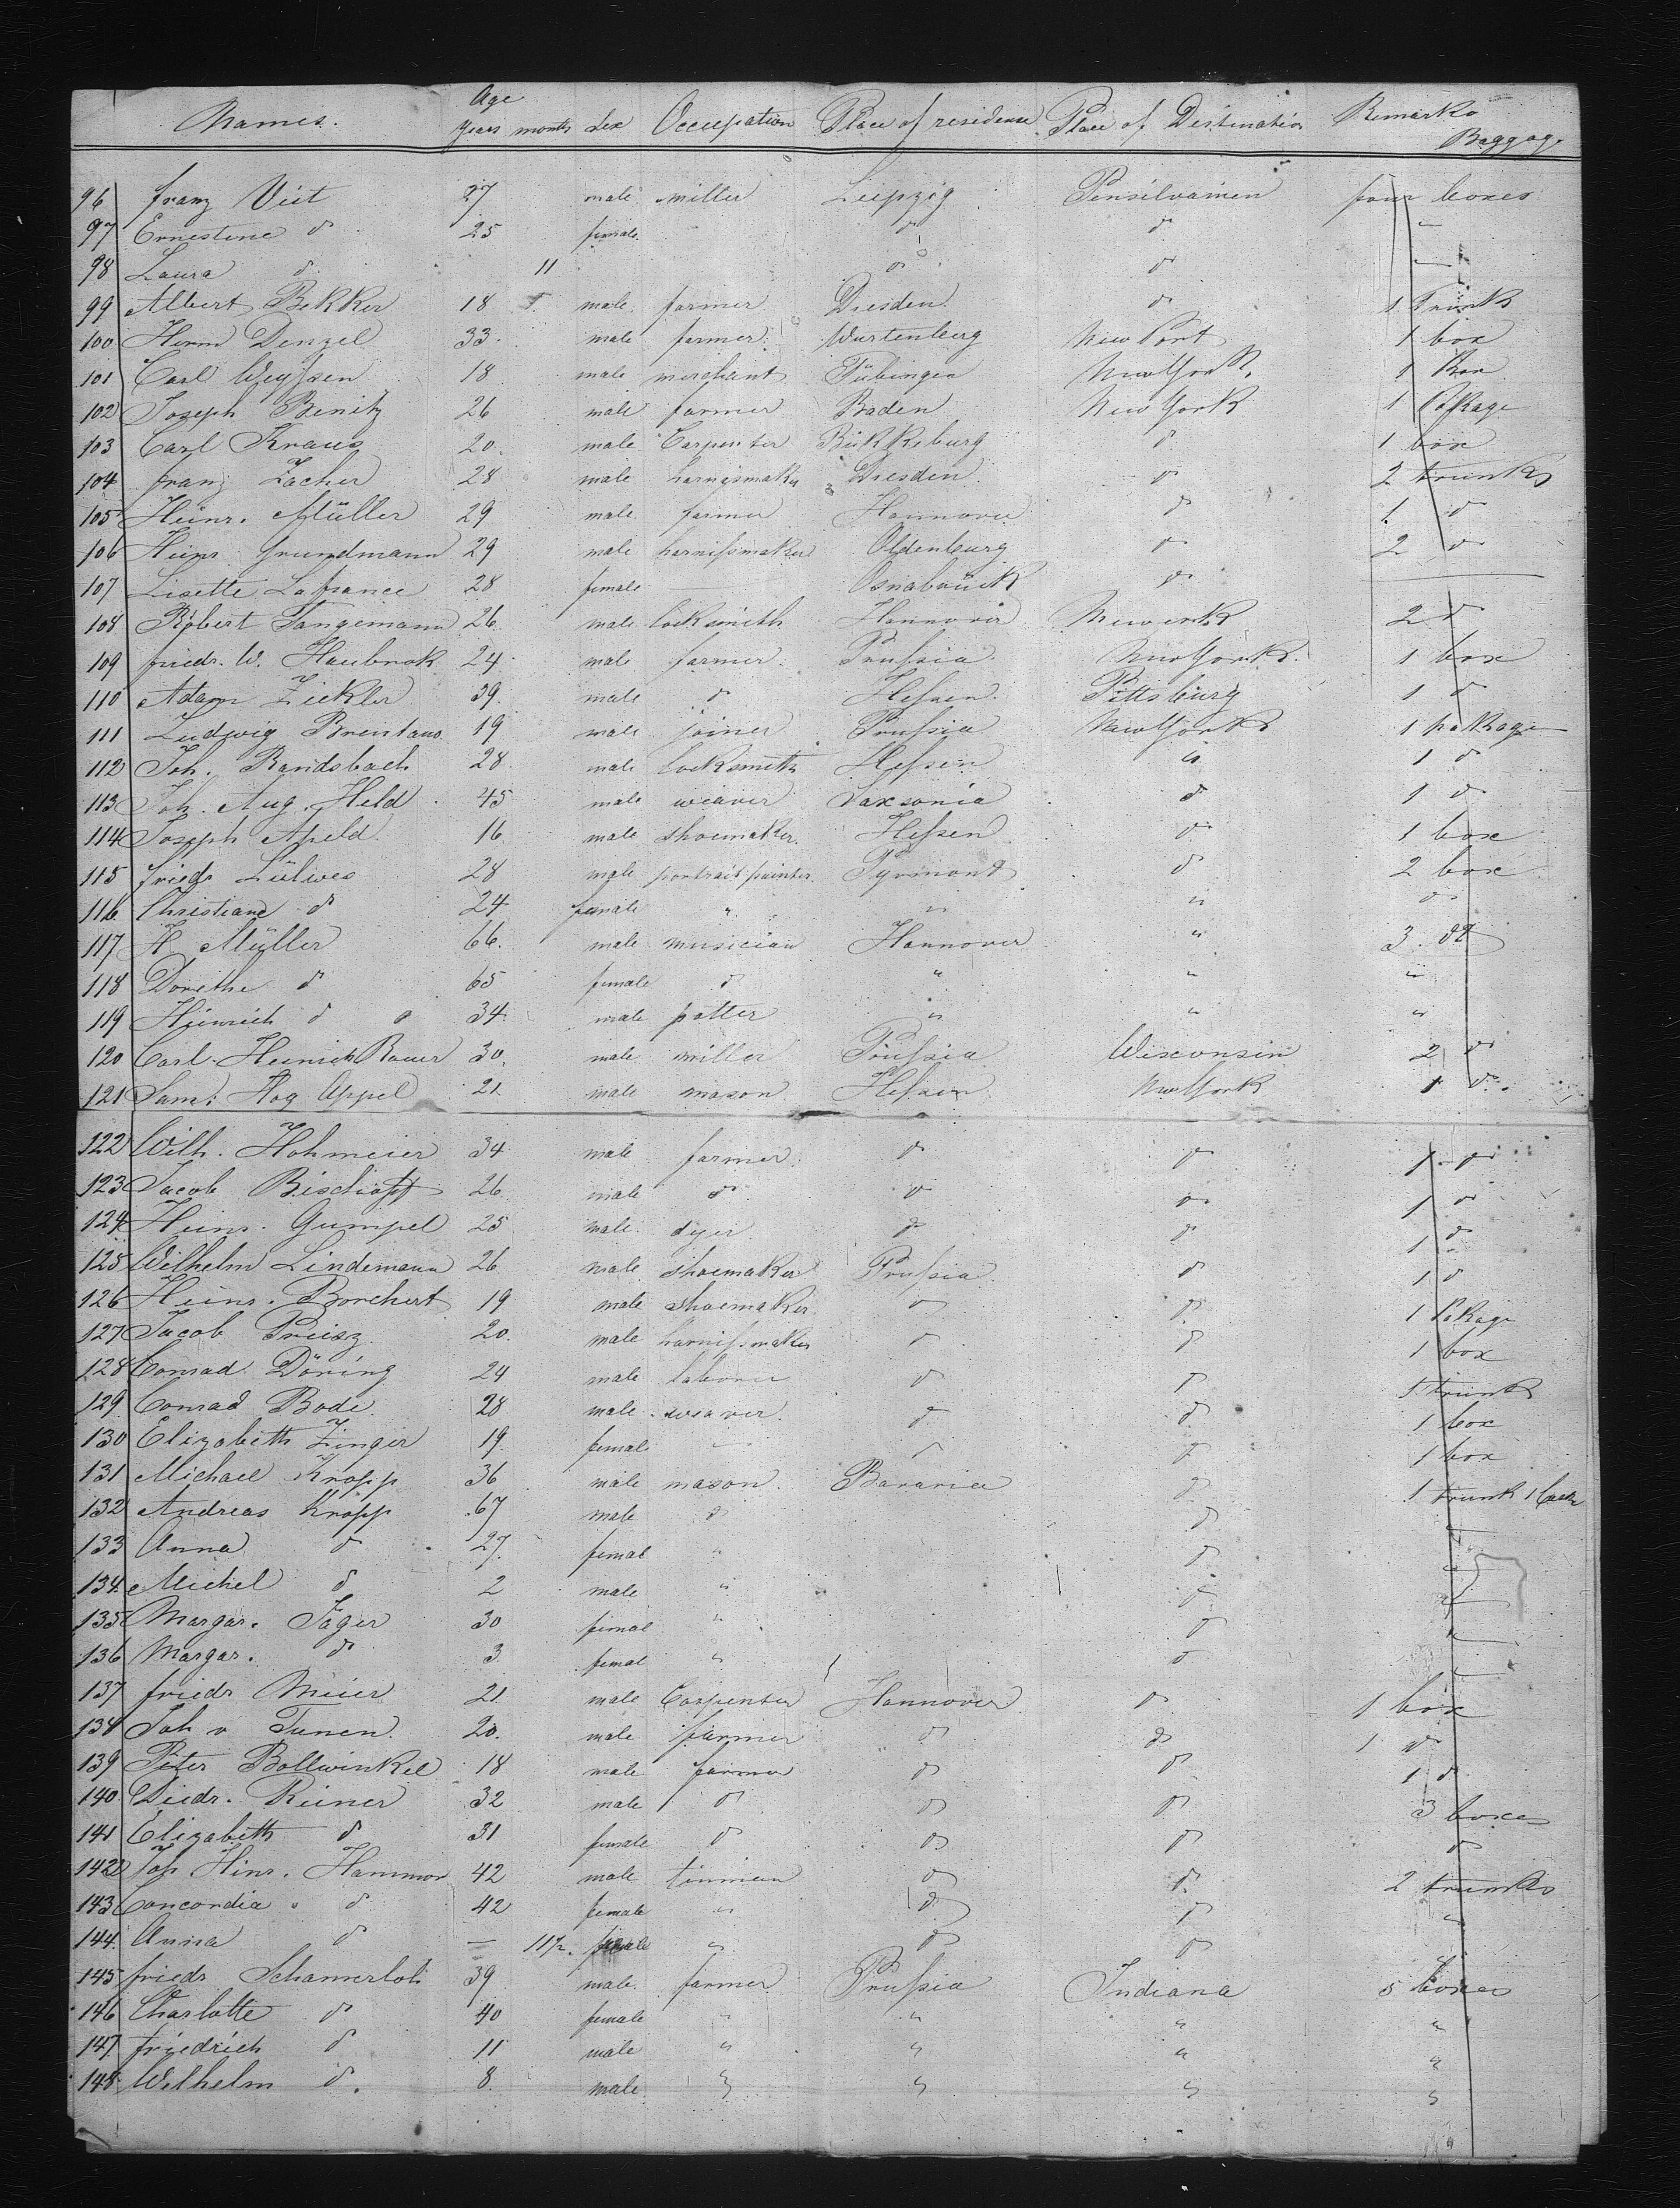 Names. Age Years months Sex Occupation Place of residence Place of Destination Remarks Baggage
96 Franz Veit 27 male miller Leipzig Pensilvainien four boxes
97 Ernestine d 25 female d d "
98 Laura d 11 d d "
99 Albert Bekker 18 male farmer Dresden d 1 Trunk
100 Herm Denzel 33 male farmer Wurtenberg New Port 1 box
101 Carl Weyssen 18 male merchant Tübingen New York 1 Box
102 Joseph Benitz 26 male farmer Baden New York 1 Pakage
103 Carl Kraus 20 male Carpenter Bükkeburg d 1 box
104 Franz Zacher 28 male harnismaker Dresden d 2 trunks
105 Heinr. Müller 29 male farmer Hannover d 1 d
106 Heinr Grundmann 29 male harnissmaker Oldenburg d 2 d
107 Lisette Lafrance 28 female — Osnabrück d —
108 Robert Tangemann 26 male locksmith Hannover 2 d
109 Friedr. W. Haubrok 24 male farmer Prussia New York 1 box
110 Adam Zickler 39 male d Hessen Pittsburg 1 d
111 Ludwig Brentano 19 male joiner Prussia New York 1 pakage
112 Joh. Randsbach 28 male locksmith Hessen " 1 d
113 Joh. Aug. Held 45 male weaver Saxsonia d 1 d
114 Joseph Apeld 16 male shoemaker Hessen d 1 box
115 Friedr Lülwes 28 male portrait painter Pyrmont d 2 box
116 Christiane d 24 female " " " d
117 H. Müller 66 male musician Hannover " 3 d
118 Dorethe d 65 female d " " "
119 Heinrich d 34 male potter " " "
120 Carl Heinrich Bauer 30 male miller Prussia Wisconsin 2 d
121 Sam. Appel 21 male mason Hessen New York 1 d
122 Wilh. Hohmeier 34 male farmer d d 1 d
123 Jacob Bischoff 26 male d d d 1 d
124 Heinr. Gumpel 25 male dyer d d 1 d
125 Wilhelm Lindemann 26 male shoemaker Prussia d 1 d
126 Heinr. Borchert 19 male shoemaker d d 1 Pakage
127 Jacob Preisz 20 male harnissmaker d d 1 box
128 Conrad Döring 24 male laborer d d 1 trunk
129 Conrad Bode 28 male weaver d d 1 box
130 Elizabeth Zinger 19 female — d d 1 box
131 Michael Kropp 36 male mason Bavaria d 1 trunk 1
132 Andreas Kropp 67 male d d "
133 Anna d 27 femal " d "
134 Michel d 2 male " d "
135 Margar. Jäger 30 femal " d "
136 Margar. d 3 femal " d "
137 Friedr Meier 21 male Carpenter Hannover d 1 box
138 Joh v Tunen 20 male farmer d d 1 d
139 Peter Bollwinkel 18 male farmer d d 1 d
140 Diedr. Reiner 32 male d d d 3 boxes
141 Elizabeth d 31 female d d d d
142 Joh Hinr. Hammor 42 male tinman d d 2 trunks
143 Concordia d 42 female " d d "
144 Anna d — 11½ female " d d
145 Friedr 39 male farmer Prussia Indiana 5 boxes
146 Charlotte d 40 female " " " "
147 Friedrich d 11 male " " " "
148 Wilhelm d. 8 male " " " "